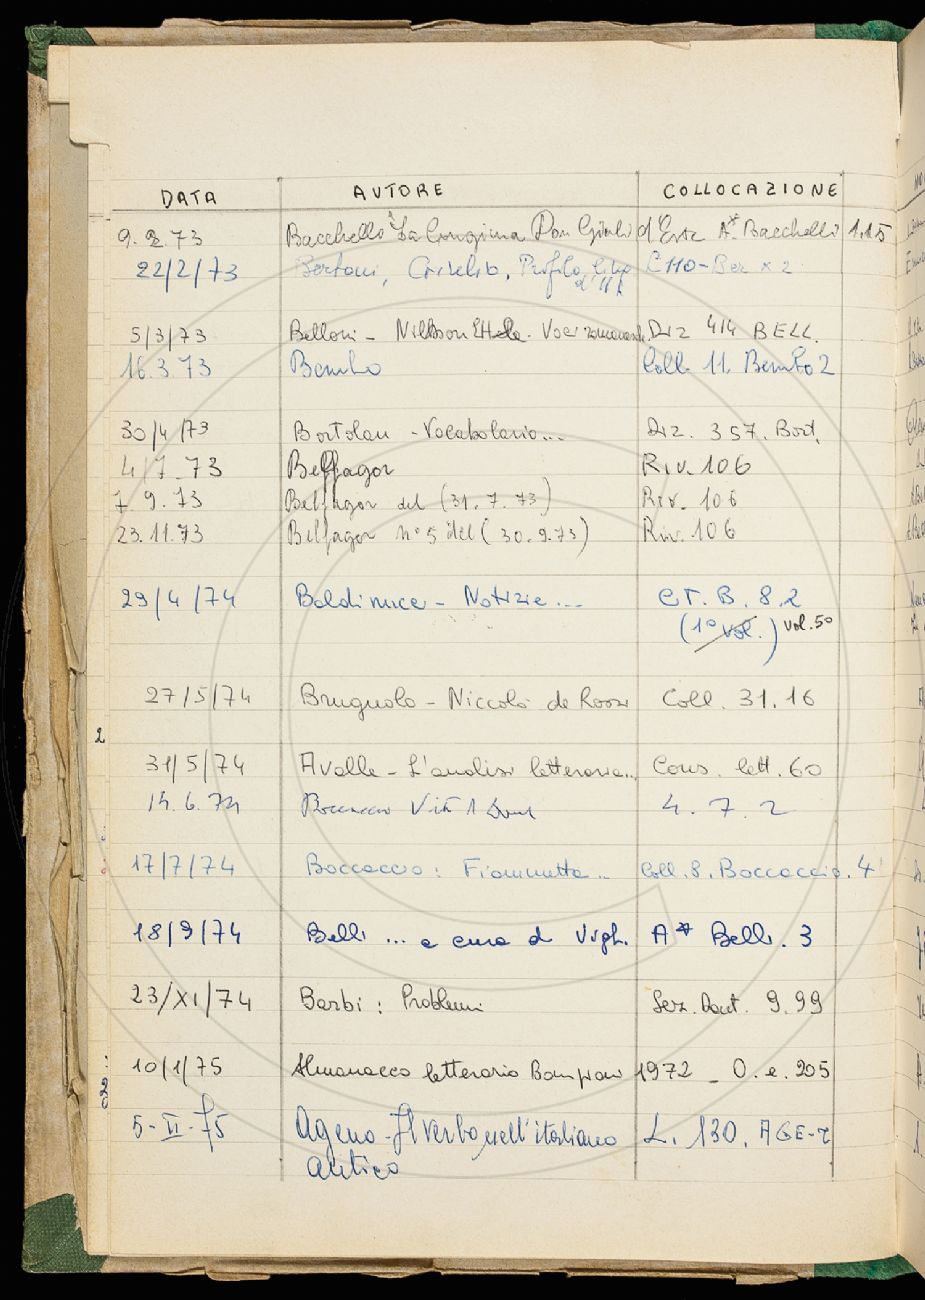 DATA AUTORE COLLOCAZIONE
9. 2. 73 Bacchelli La Congiura Don Giulio d'Este A* Bacchelli 1.15
22/2/73 Bertoni, Profilo E110-Ber x 2
d'
5/3/73 Belloni - Nilsson Ehle. Voci romanesche. Diz 414 BELL.
16.3.73 Bembo Coll. 11. Bembo 2
30/4/73 Bortolan - Vocabolario... Diz. 357. Bort.
4/7.73 Belfagor Riv. 106
7 9.73 Belfagor del (31.7.73) Riv. 106
23.11.73 Belfagor n° 5 del (30.9.73) Riv. 106
29/4/74 Baldinucci - Notizie... CT. B. 8.2
(1° vol.) vol. 5°
27/5/74 Brugnolo - Niccolò de Rossi Coll. 31.16
2
31/5/74 Avalle - L'analisi letteraria... Cons. lett. 60
14.6.74 Boccaccio 4. 7. 2
17/7/74 Boccaccio: Fiammetta... Coll. 8. Boccaccio. 4
18/9/74 Belli ... a cura di Vigh. A* Belli. 3
23/XI/74 Barbi: Problemi Sez. Dant. 9.99
10/1/75 Almanacco letterario Bompiani 1972 - O.e. 205
5-II-75 Ageno - Il verbo nell'italiano L. 130. AGE-
antico